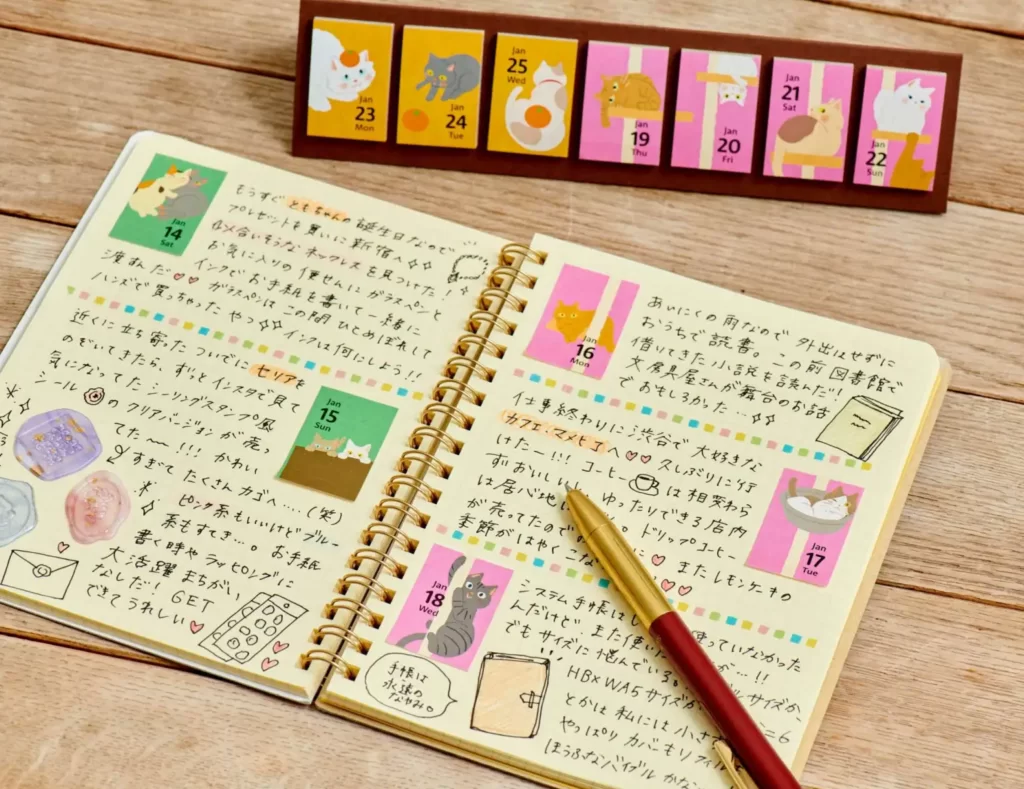 Jan
23
Mon
Jan
24
Tue
Jan
25
Wed
Jan
19
Thu
Jan
20
Fri
Jan
21
Sat
Jan
22
Sun
Jan
14
Sat
もうすぐ ともちゃんの 誕生日なので
プレゼントを 買いに 新宿へ
合いそうな ネックレス を見つけた!
お気に入りの 便せんに ガラスペンと
インクで お手紙を 書いて 一緒に
渡すんだ♡♡ ガラスペンは この間 ひとめぼれして
ハンズで 買っちゃった やつ インクは何にしよう!!
近くに立ち寄った ついでに セリアを
のぞいてきたら、ずっと インスタで見て
気になってた シーリングスタンプ風
シール の クリアバージョンが 売っ
てた〜!!! かわい
すぎて たくさん カゴへ…(笑)
ピンク系もいいけど ブルー
系もすてき…。 お手紙
書く時や ラッピングに
大活躍 まちがい
なしだ! GET
できて うれしい♡
Jan
15
Sun
Jan
16
Mon
あいにくの 雨なので 外出はせずに
おうちで 読書。この前 図書館で
借りてきた 小説を 読んだ!!
文房具屋さんが 舞台の お話
で おもしろかった…
仕事終わりに 渋谷で 大好きな
カフェ・マメヒコ へ♡♡ 久しぶりに 行
けたー!!! コーヒー は 相変わら
ず おいしいし ゆったりできる 店内
は 居心地 ドリップコーヒー
が 売ってたので ♡ また レモンケーキの
季節が はやく こな ♡♡
Jan
17
Tue
Jan
18
Wed
システム手帳は 使っていなかった
んだけど また 使い が…!!
でも サイズに 悩んでいる。 サイズか、
HB×WA5 サイズか
とかは 私には 小さ
やっぱり カバーもリフィル
ほうふな バイブル かな
手帳は
永遠の
なやみ。